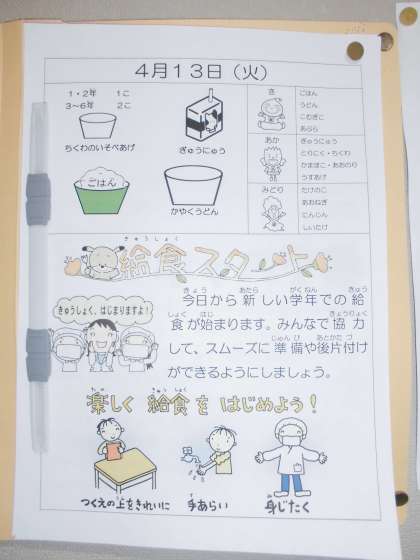 4月13日（火）
1・2年　1こ
3～6年　2こ
ちくわのいそべあげ
ぎゅうにゅう
ごはん
かやくうどん
き
ごはん
うどん
こむぎこ
あぶら
あか
ぎゅうにゅう
とりにく・ちくわ
かまぼこ・あおのり
うすあげ
みどり
たけのこ
あおねぎ
にんじん
しいたけ
きゅうしょく
給食スタート
きゅうしょく、はじまりますよ！
きょう あたら がくねん きゅう
今日から新しい学年での給
しょく はじ きょうりょく
食が始まります。みんなで協力
じゅんび あとかたづ
して、スムーズに準備や後片付け
ができるようにしましょう。
たの きゅうしょく
楽しく給食をはじめよう！
つくえの上をきれいに
手あらい
身じたく